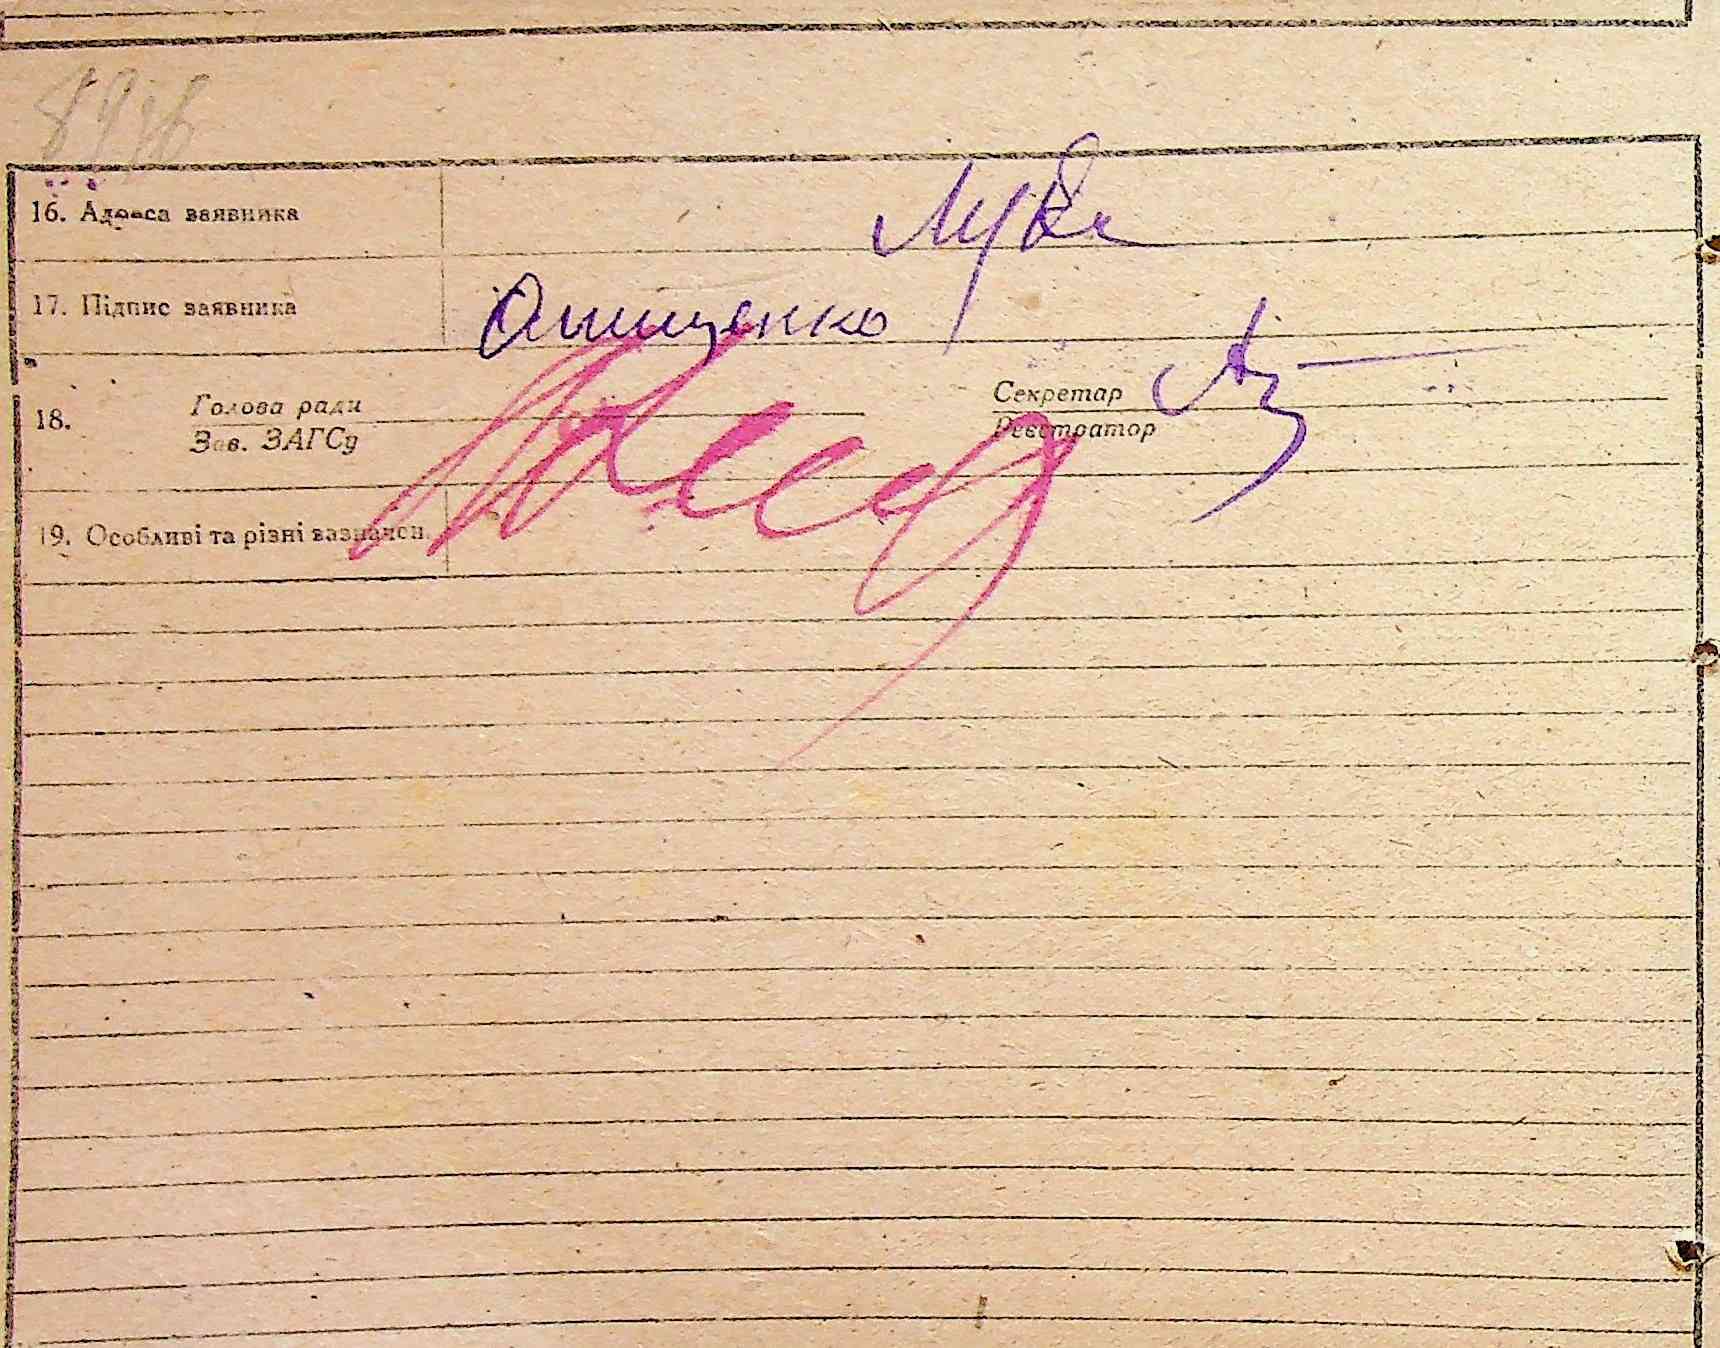 16. Адреса заявника
17. Підпис заявника Онищенко
18. Голова ради Секретар
Зав. ЗАГСу Реєстратор
19. Особливі та різні зазначен.